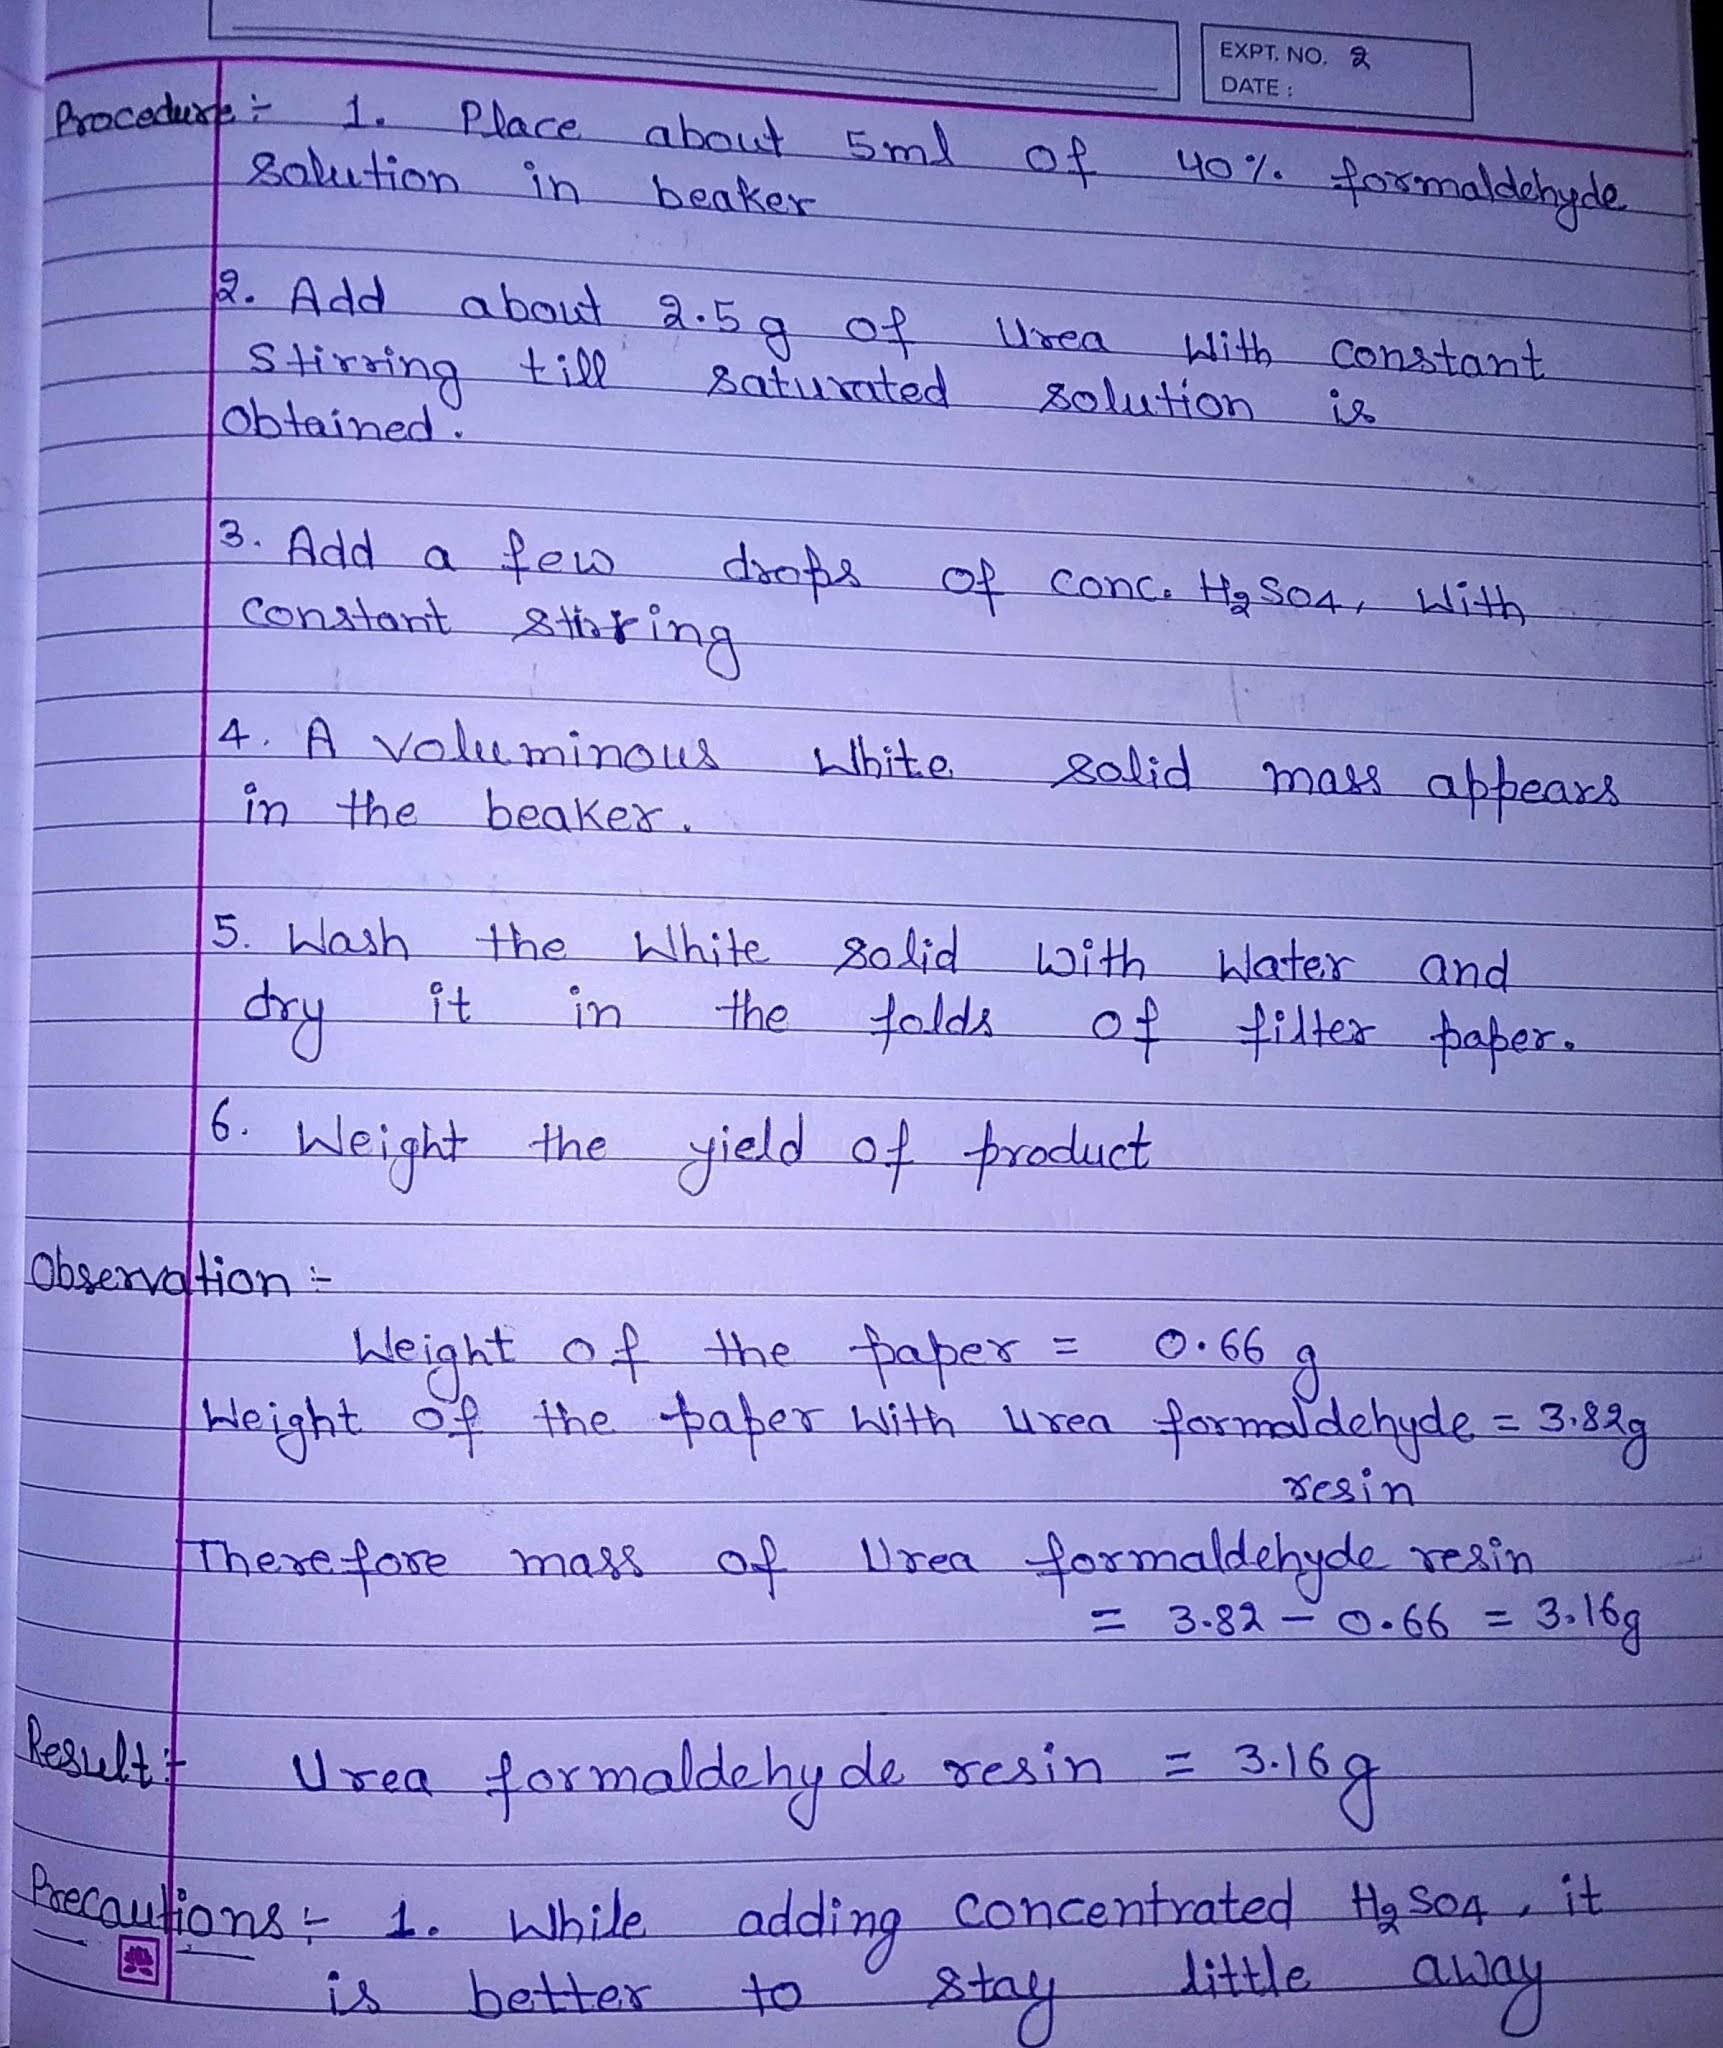 EXPT. NO. 2
DATE :
Procedure :- 1. Place about 5ml of 40% formaldehyde
solution in beaker
2. Add about 2.5g of Urea With constant
stirring till saturated solution is
obtained.
3. Add a few drops of conc. H2SO4, With
constant stirring
4. A voluminous White solid mass appears
in the beaker.
5. Wash the White solid with Water and
dry it in the folds of filter paper.
6. Weight the yield of product
Observation :-
Weight of the paper = 0.66 g
Weight of the paper With urea formaldehyde = 3.82g
resin
Therefore mass of Urea formaldehyde resin
= 3.82 - 0.66 = 3.16g
Result :- Urea formaldehyde resin = 3.16g
Precautions :- 1. While adding concentrated H2SO4, it
is better to stay little away